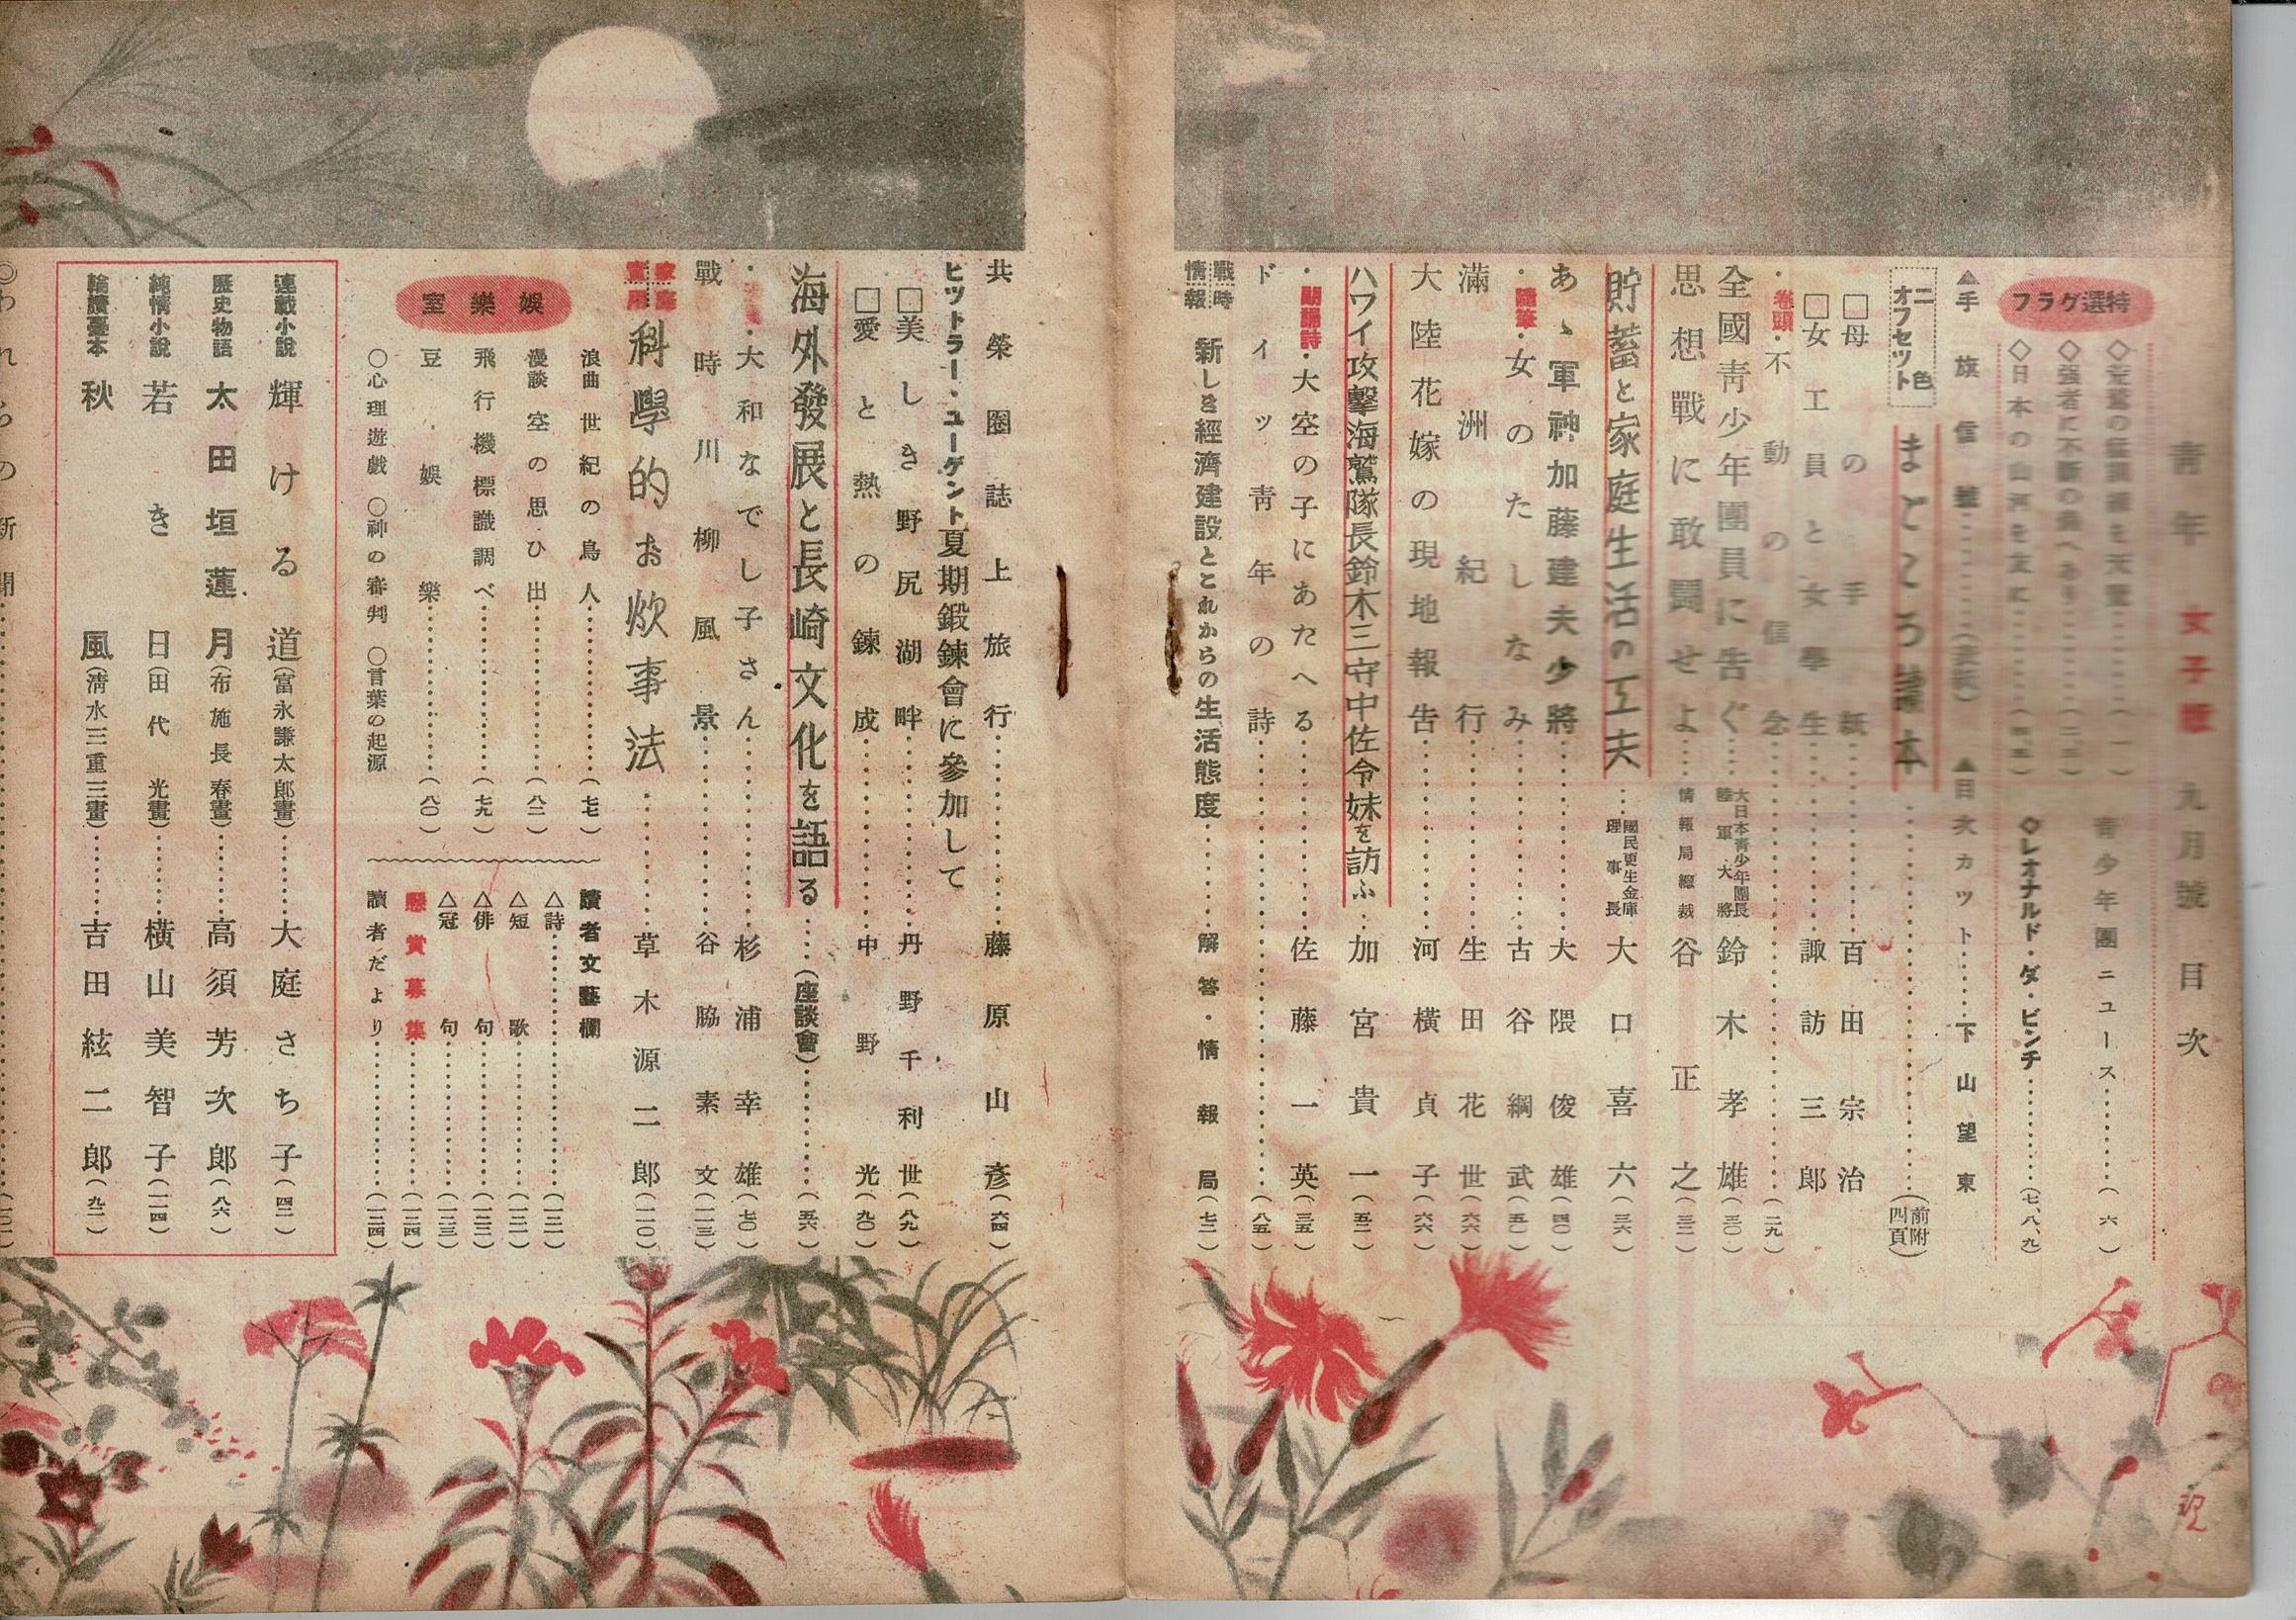 青年 女子版 九月號 目次
特選グラフ
◇荒鷲の
青少年團ニュース……(六)
◇强者に不斷の
◇日本の山河を友に……
◇レオナルド・ダ・ビンチ……(七、八、九)
▲手旗信號……
▲目次カット……下山望東
二色オフセット
まどころ讀本……(前附四頁)
□母の手紙……百田宗治
□女工員と女學生……諏訪三郎
卷頭・不動の信念……(二九)
全國靑少年團員に吿ぐ……大日本靑少年團長 陸軍大將 鈴木孝雄(三〇)
思想戰に敢鬪せよ……情報局總裁 谷正之(三二)
貯蓄と家庭生活の工夫……國民更生金庫理事長 大口喜六(三六)
あゝ軍神加藤建夫少將……大隈俊雄(四〇)
隨筆・女のたしなみ……古谷綱武(五〇)
滿洲紀行……生田花世(六六)
大陸花嫁の現地報吿……河橫貞子(六六)
ハワイ攻擊海鷲隊長鈴木三守中佐令妹を訪ふ……加宮貴一(五二)
朗誦詩・大空の子にあたへる……佐藤一英(三五)
ドイッ靑年の詩……(八五)
戰時情報 新しき經濟建設とこれからの生活態度……解答・情報局(七二)
共榮圈誌上旅行……藤原山彥(六四)
ヒットラー・ユーゲント夏期鍛鍊會に參加して
□美しき野尻湖畔……丹野千利世(八九)
□愛と熱の鍊成……中野光(九〇)
海外發展と長崎文化を語る……(座談會)……(五六)
・大和なでし子さん……杉浦幸雄(七〇)
戰時川柳風景……谷脇素文(一一三)
家庭實用 科學的お炊事法……草木源二郎(一一〇)
娛樂室
浪曲 世紀の鳥人……(七七)
漫談 空の思ひ出……(八二)
飛行機標識調べ……(七九)
豆娛樂……(八〇)
〇心理遊戲 〇神の審判 〇言葉の起源
讀者文藝欄
△詩……(一二一)
△短歌……(一二二)
△俳句……(一二三)
△冠句……(一二三)
懸賞募集……(一二四)
讀者だより……(一二四)
連載小說 輝ける道(富永謙太郎畫)……大庭さち子(四二)
歷史物語 太田垣蓮月(布施長春畫)……高須芳次郎(八六)
純情小說 若き日(田代光畫)……橫山美智子(一一四)
輪讀臺本 秋風(淸水三重三畫)……吉田絃二郎(九二)
◎われらの新聞……